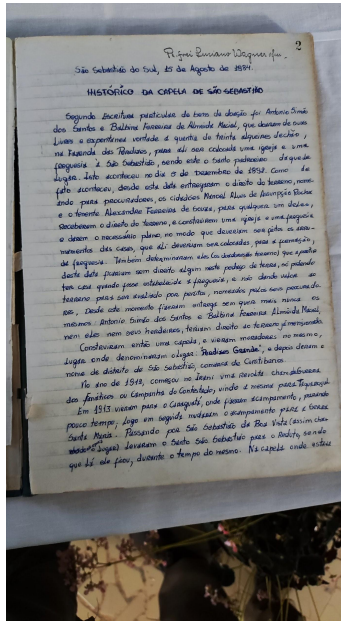 Pe. Frei Luciano Wagner ofm.
2
São Sebastião do Sul, 15 de Agosto de 1984.
HISTÓRICO DA CAPELA DE SÃO SEBASTIÃO
Segundo Escritura particular de bens de doação foi Antonio Simão
dos Santos e Balbina Ferreira de Almeida Maciel, que doaram de suas
livres e espontânea vontade a quantia de trinta alqueires de chão,
na Fazenda dos Perdizes, para ali ser colocada uma igreja e uma
freguesia a São Sebastião, sendo este o santo padroeiro daquele
lugar. Isto aconteceu no dia 5 de Dezembro de
fato aconteceu, desde esta data entregaram o direito do terreno, nome-
ando para procuradores, os cidadões Manoel Alves de Assumpção Rocha
e o tenente Alexandre Ferreira de Souza, para qualquer um deles,
receberem o direito do terreno, e construirem uma igreja e uma freguesia
e derem o necessário plano, no modo que deveriam ser feitos os arru-
mamentos das casas, que ali deveriam ser colocadas, para a formação
da freguesia. Também determinaram eles (os doadores do terreno) que a partir
desta data ficariam sem direito algum neste pedaço de terra, só podendo
ter caso quando fosse estabelecida a freguesia, e não dando valor ao
terreno para ser avaliado por peritos, nomeados pelos seus procurado-
res. Desde este momento ficaram entregue sem quera mais nunca os
mesmos: Antonio Simão dos Santos e Balbina Ferreira Almeida Maciel,
nem eles nem seus herdeiros, teriam direito ao terreno já mencionado.
Construiram então uma capela, e vieram moradores no mesmo,
lugar onde denominaram o lugar: "Perdizes Grande", e depois deram o
nome de distrito de São Sebastião, comarca de Curitibanos.
No ano de 1912, começou no Irani uma Revolta chamada Guerra
dos fanáticos ou Campanha do Contestado, vindo a mesma para Taquaruçú
Em 1913 vieram para o Caraguatá, onde fizeram acampamento, parando
pouco tempo, logo em seguida mudaram o acampamento para a Serra
Santa Maria. Passando por São Sebastião da Boa Vista (assim cha-
lugar) levaram o Santo São Sebastião para o Reduto, sendo
que lá ele ficou, durante o tempo do mesmo. Na capela onde estava